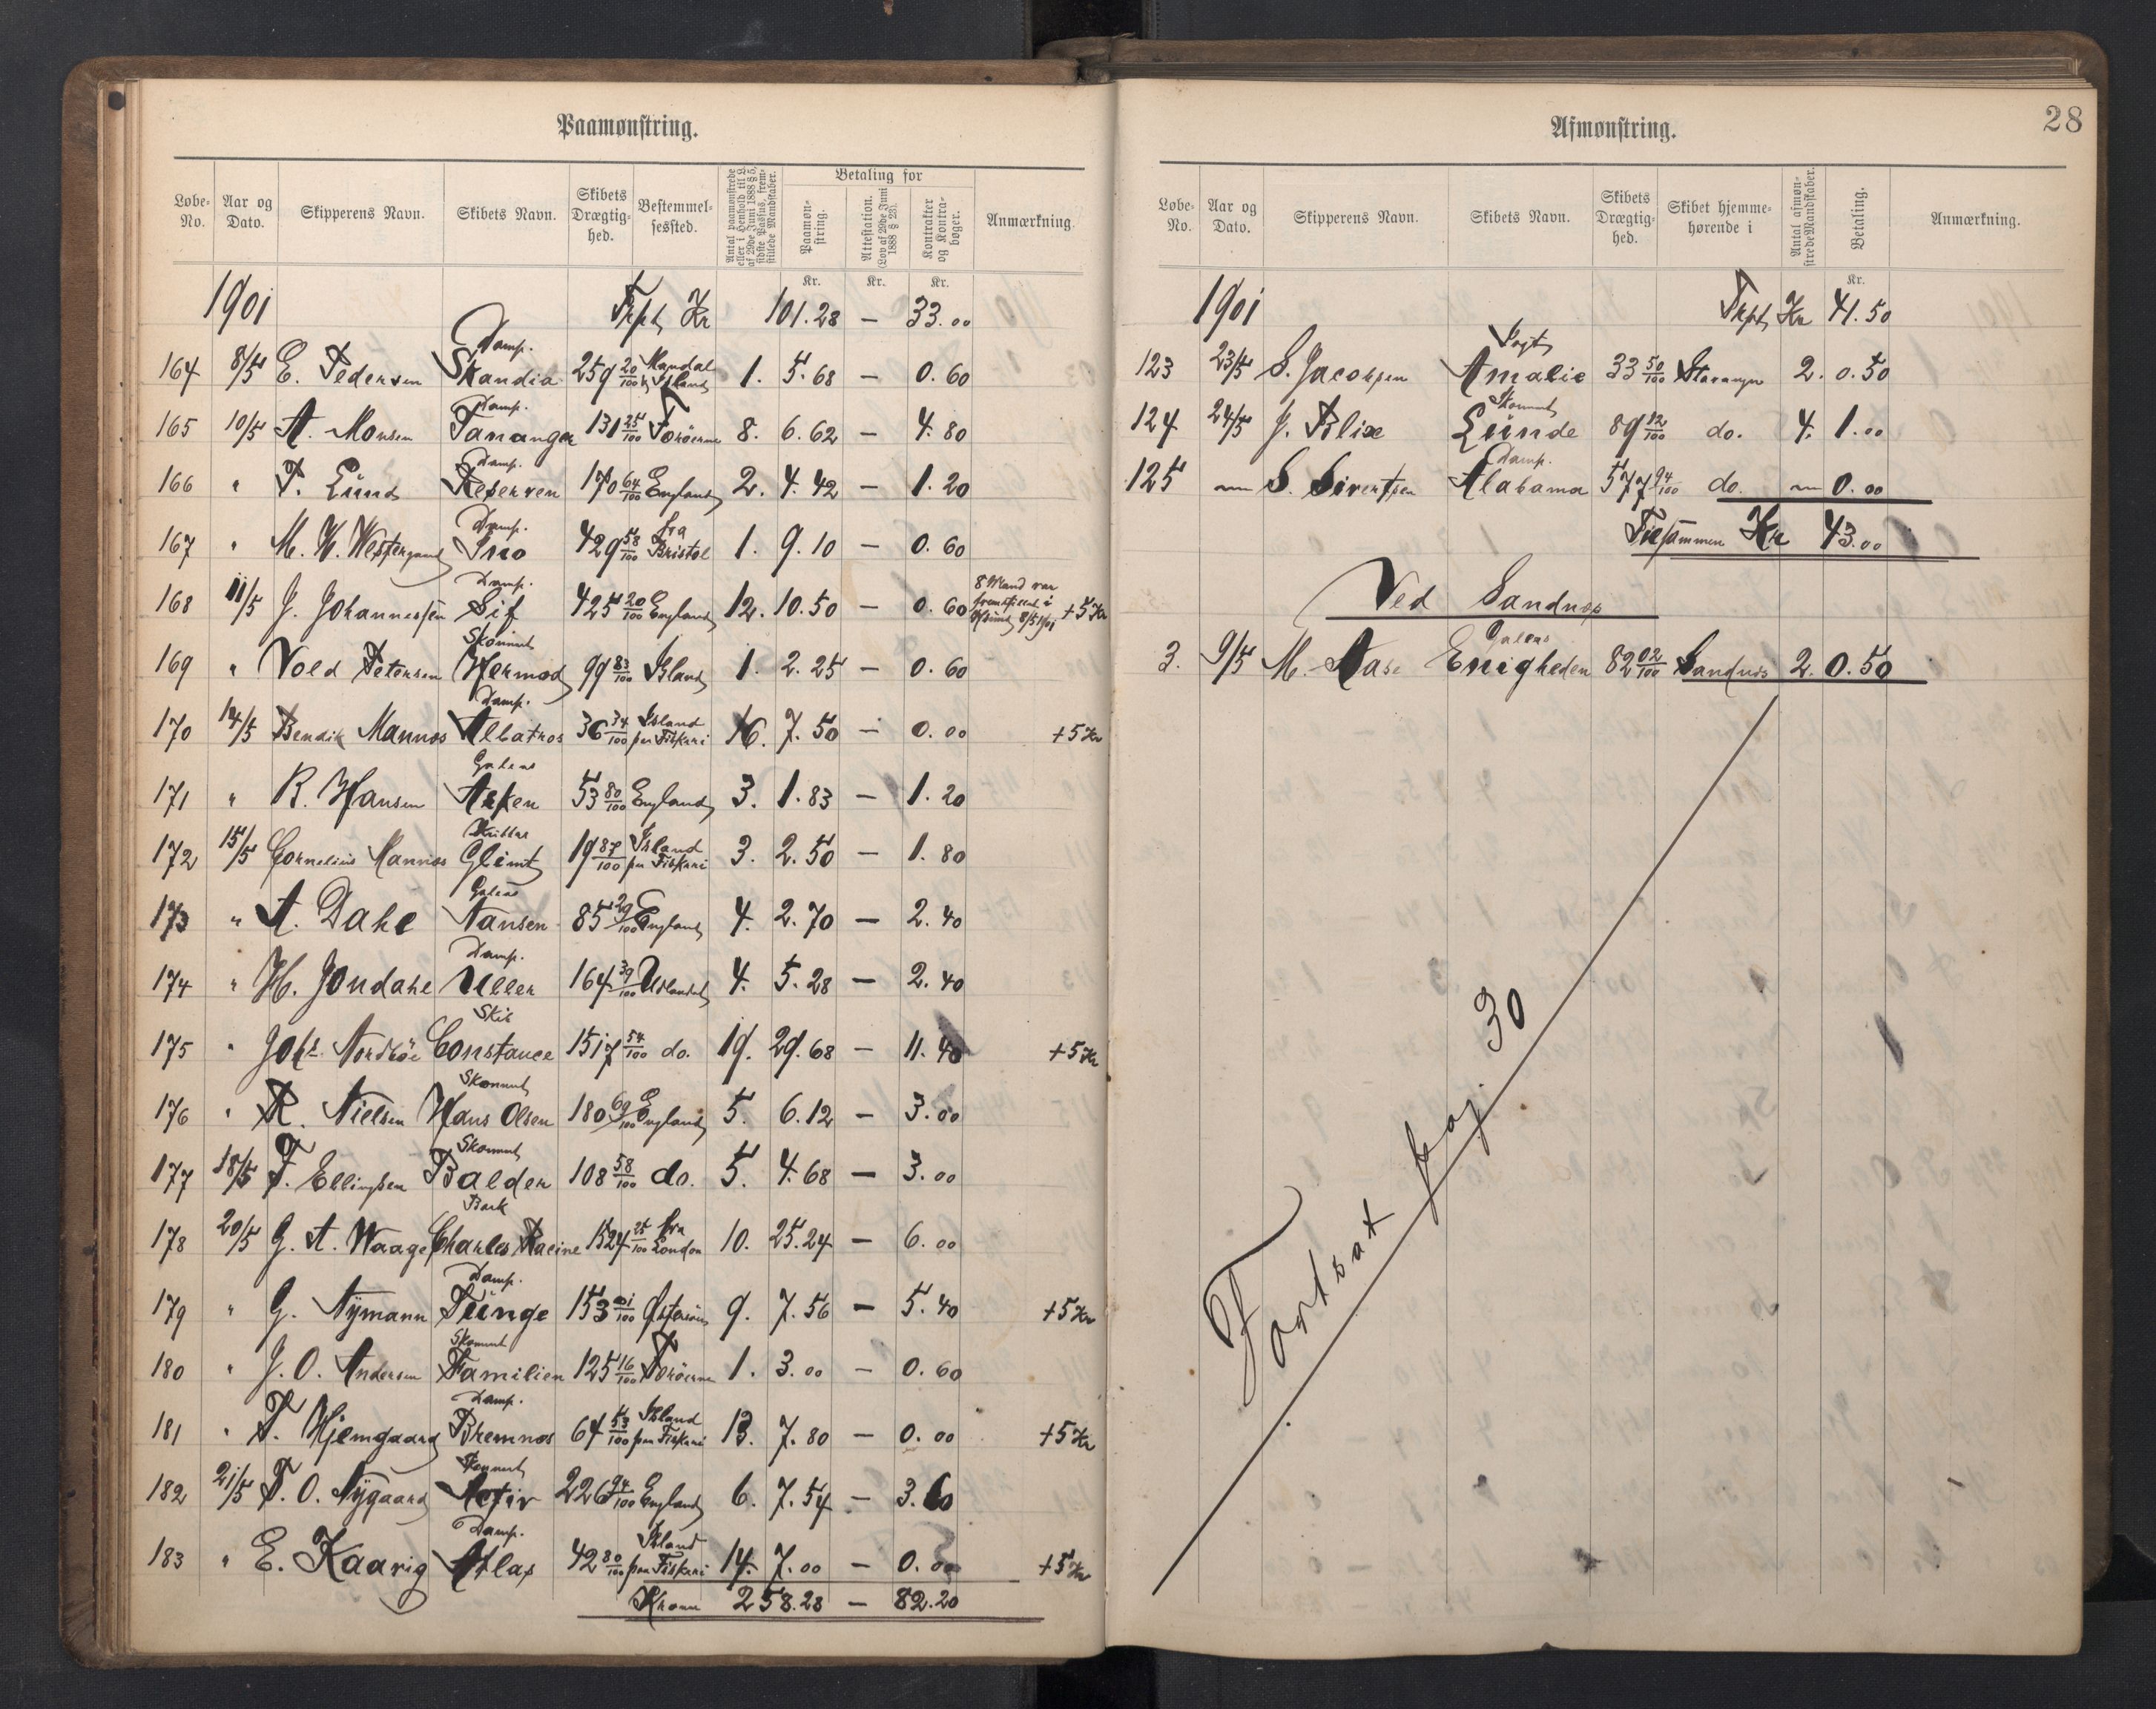 Paamønstring.
Løbe-No. Aar og Dato. Skipperens Navn. Skibets Navn. Skibets Drægtighed. Bestemmelsessted. Antal paamønstrede eller i Henhold til L. af 29de Juni 1888 § 5, sidste Passus, fremstillede Mandskaber. Betaling for Paamønstring. Attestation. (Lov af 29de Juni 1888 § 28). Kontrakter og Kontrabøger. Anmærkning.
Kr. Kr. Kr.
1901 Trpt Kr 101.28 — 33.00
164 8/5 E. Pedersen Damp. Skandia 259 20/100 Mandal Island 1. 5.68 — 0.60
165 10/5 A. Monsen Damp. Tananger 131 25/100 Færöerne 8. 6.62 — 4.80
166 " T. Lund Damp. Reserven 170 64/100 England 2. 4.42 — 1.20
167 " M. K. Westergaard Damp. Ino 429 58/100 fra Bristol 1. 9.10 — 0.60
168 11/5 J. Johannessen Damp. Sif 425 20/100 England 12. 10.50 — 0.60 8 Mand var fremstillet i 8/5 1901 +5 Kr
169 " Vold Petersen Skonnert Hermod 99 83/100 Island 1. 2.25 — 0.60
170 14/5 Bendik Mannes Damp. Albatros 36 34/100 Island paa Fiskeri 16. 7.50 — 0.00 +5 Kr
171 " R. Hansen Galeas Asken 53 80/100 England 3. 1.83 — 1.20
172 15/5 Cornelius Mannes Kutter Glimt 19 87/100 Island paa Fiskeri 3. 2.50 — 1.80
173 " A. Dahl Galeas Nansen 85 29/100 England 4. 2.70 — 2.40
174 " H. Jondahl Damp. Uller 164 39/100 Udlandet 4. 5.28 — 2.40
175 " Johs. Nordböe Skib Constance 1517 54/100 do. 19. 29.68 — 11.40 +5 Kr
176 " R. Nielsen Skonnert Hans Olsen 180 69/100 England 5. 6.12 — 3.00
177 18/5 T. Ellingsen Skonnert Balder 108 58/100 do. 5. 4.68 — 3.00
178 20/5 G. A. Waage Bark Charles Racine 1524 25/100 fra London 10. 25.24 — 6.00
179 " G. Nymann Damp. Tunge 153 01/100 Østersöen 9. 7.56 — 5.40 +5 Kr
180 " J. O. Andersen Skonnert Familien 125 16/100 Færöerne 1. 3.00 — 0.60
181 " T. Hjemgaard Damp. Bremnes 64 53/100 Island paa Fiskeri 13. 7.80 — 0.00 +5 Kr
182 21/5 T. O. Nygaard Skonnert Activ 226 94/100 England 6. 7.54 — 3.60
183 " E. Kaarig Damp. Atlas 42 80/100 Island paa Fiskeri 14. 7.00 — 0.00 +5 Kr
Kroner 258.28 — 82.20
28
Afmønstring.
Løbe-No. Aar og Dato. Skipperens Navn. Skibets Navn. Skibets Drægtighed. Skibet hjemmehørende i Antal afmønstrede Mandskaber. Betaling. Anmærkning.
Kr.
1901 Trpt Kr 41.50
123 23/5 S. Jacobsen Jagt Amalie 33 50/100 Stavanger 2. 0.50
124 24/5 J. Blixe Skonnert Lünde 89 12/100 do. 4. 1.00
125 — S. Sivertsen Damp. Alabama 577 94/100 do. — 0.00
Tilsammen Kr 43.00
Ved Sandnes
3. 9/5 M. Aase Galeas Enigheden 82 02/100 Sandnes 2. 0.50
Fortsat pag. 30